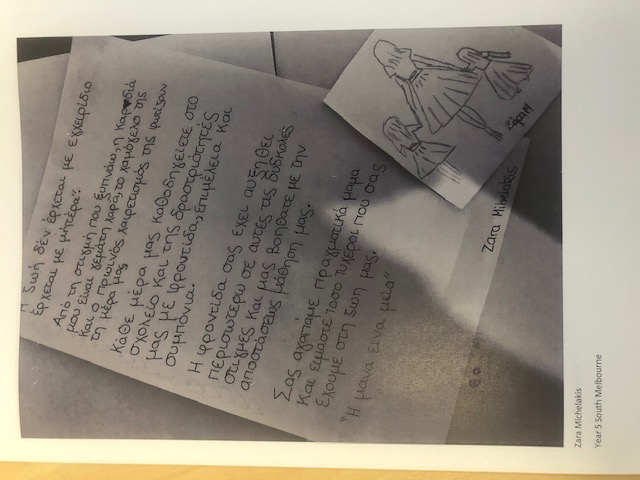 Η ζωή δέν έρχεται με εγχειρίδιο
έρχεται με μητέρα".
Από τη στιγμή που ξυπνάω, η καρδιά
μου είναι γεμάτη χαρά, το χαμόγελο της
και ο πρωινός χαιρετισμός της φωτίζουν
τη μέρα μας
Κάθε μέρα μας καθοδηγείετε στο
σχολείο και της δραστριότητές
μας με φροντίδα, επιμέλεια και
συμπόνια.
Η φροντίδα σας έχει αυξηθεί
περισσωτέρω σε αυτες τις δύσκολες
στιγμές και μας βοηθάτε με την
αποστάσεως μάθηση μας.
Σας αγαπάμε πραγματικά μαμα
και είμαστε τοσο τυχεροι που σας
έχουμε στη ζωη μας.
"Η μανα είνα μεία"
Zara Mihelakis
ZaraM
Zara Michelakis
Year 5 South Melbourne